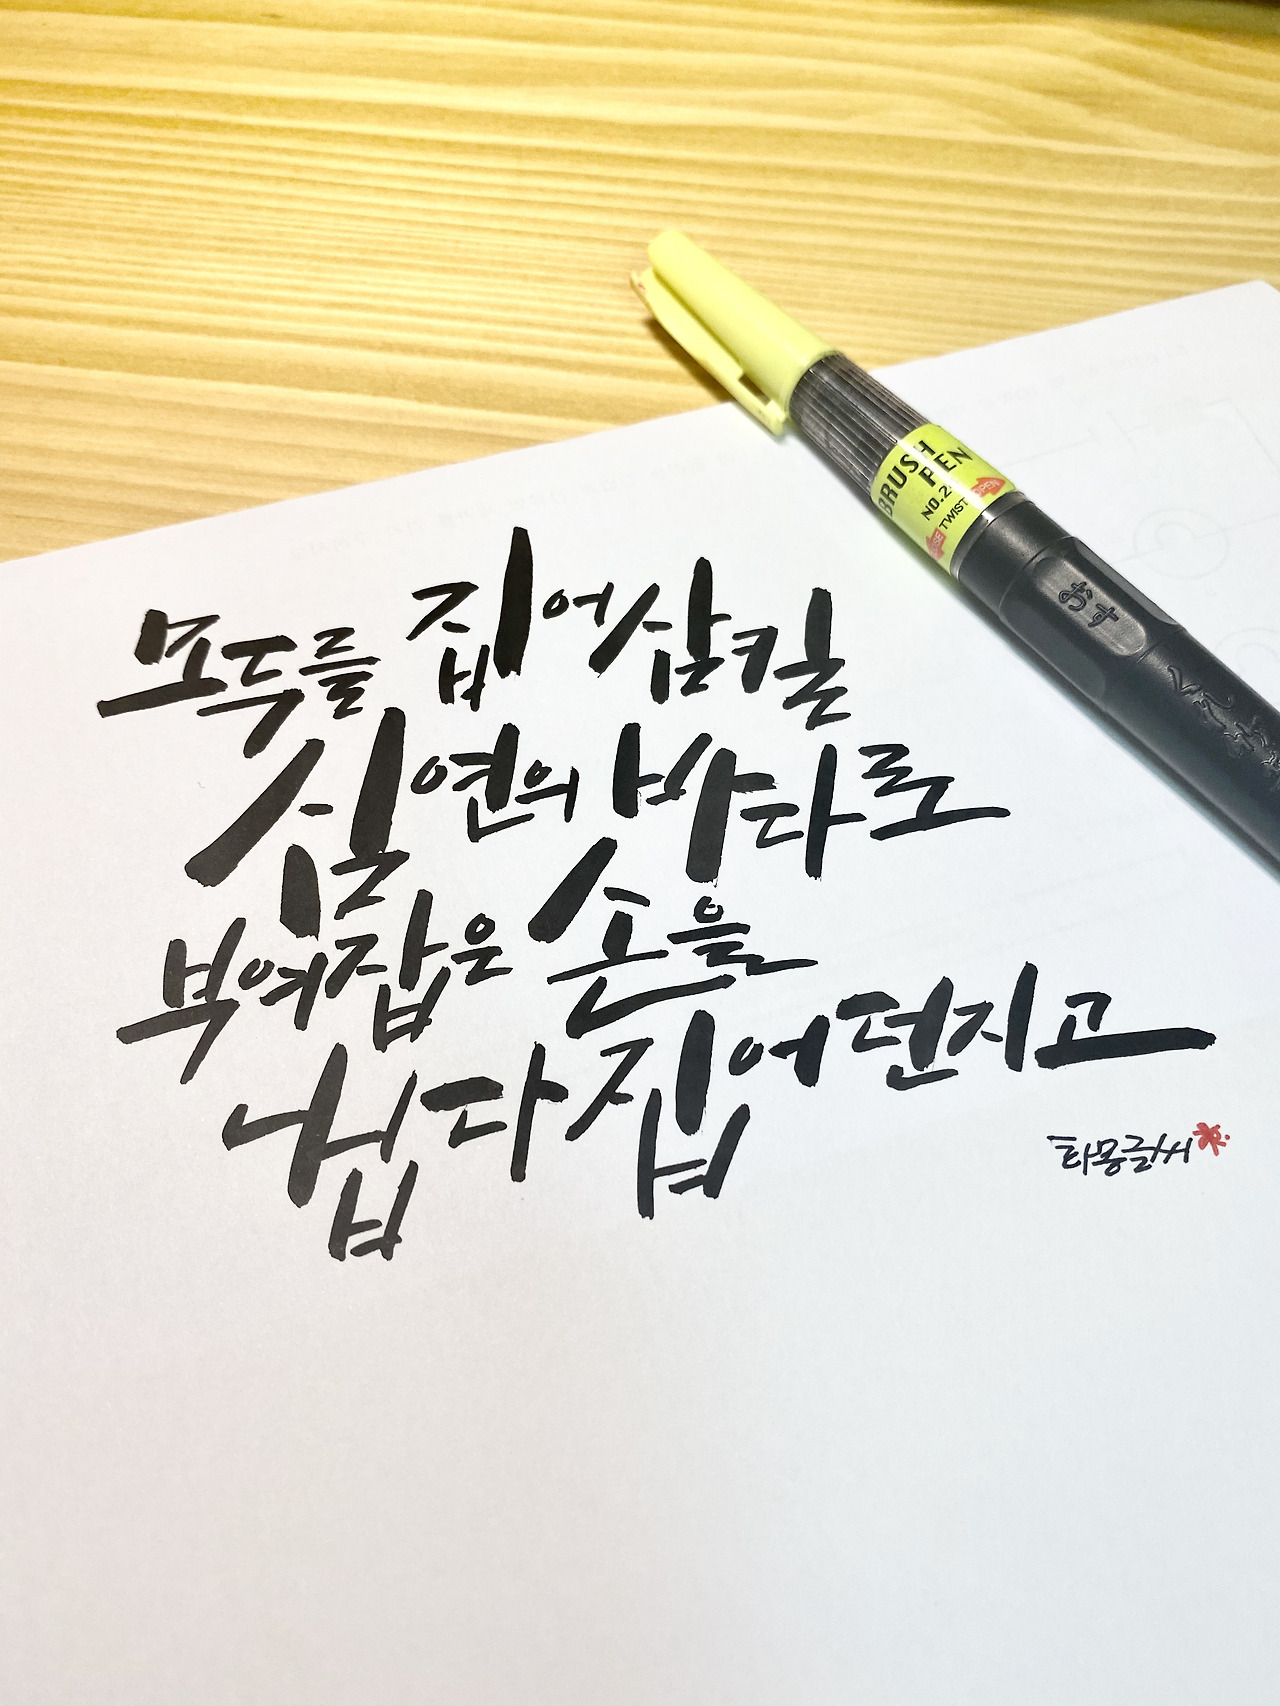 모두를 집어삼킬
심연의 바다로
부여잡은 손을
냅다 집어던지고
타몽글씨
BRUSH
PEN
NO.2
TWIST
OPEN